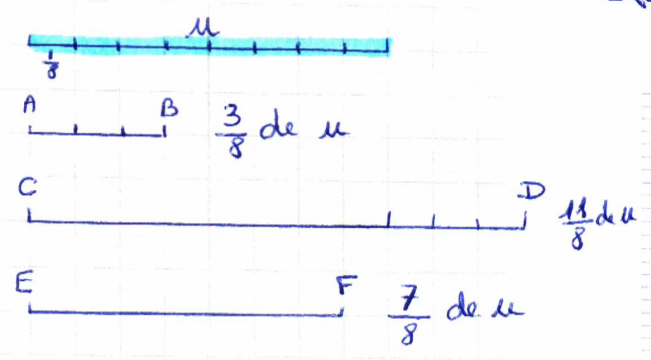 u
1/8
A B 3/8 de u
C D 11/8 de u
E F 7/8 de u